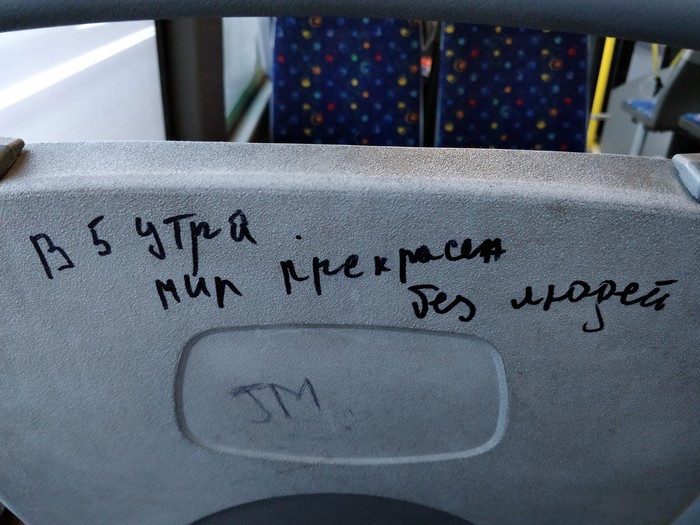 в 5 утра
мир прекрасен
без людей
JM